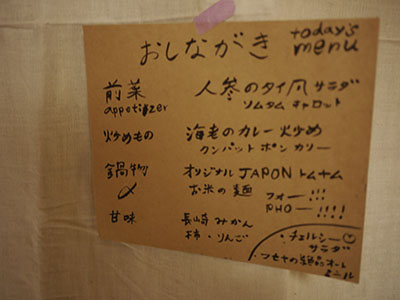 おしながき
today's
menu
前菜
appetizer
人参のタイ風サラダ
ソムタム キャロット
炒めもの
海老のカレー炒め
クンパット ポン カリー
鍋物
オリジナル JAPON トムヤム
〆
お米の麺
フォー!!!
PHO—!!!!
甘味
長崎みかん
柿・りんご
・チェルシー
サラダ